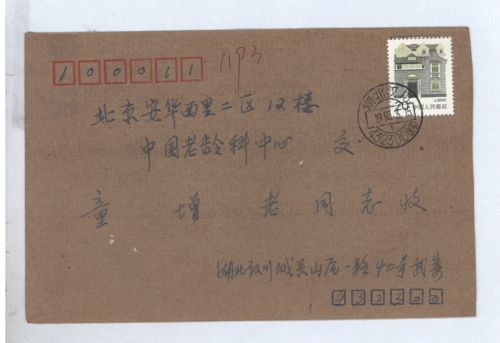 100011
1193
北京安华西里二区12楼
中国老龄科中心 交
童增老同志收
湖北汉川城关山后一路40号武蓁
432300
20
中国人民邮政
432300